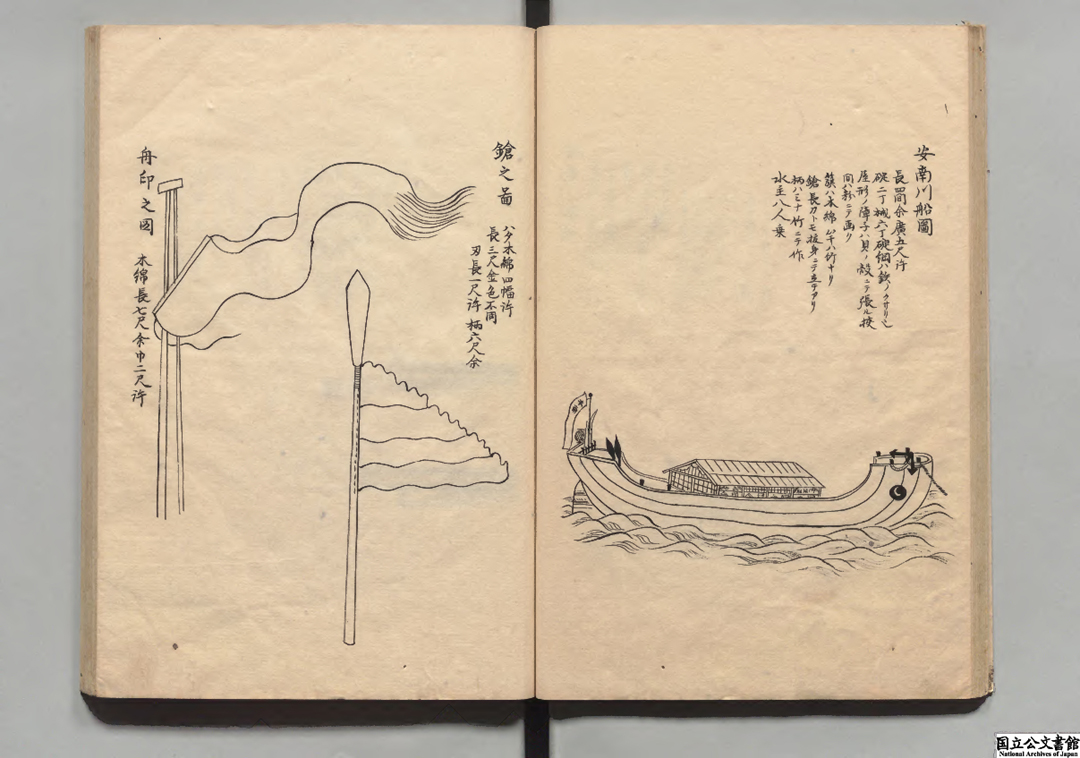 安南川船圖
長四間余廣五尺許
碇二丁械六丁碇綱ハ鉄ノクサリ也
屋形ノ障子ハ貝ノ殻ニテ張ル挾
間ハ彩ニテ画ク
簱ハ木綿サヲハ竹ナリ
鎗長刀トモ抜身ニテ立テアリ
柄ハミナ竹ニテ作
水主八人乗
鎗之圖
ハタ木綿四幅許
長三尺余色不同
刃長一尺許 柄六尺余
舟印之図
木綿長七尺余巾二尺許
国立公文書館
National Archives of Japan